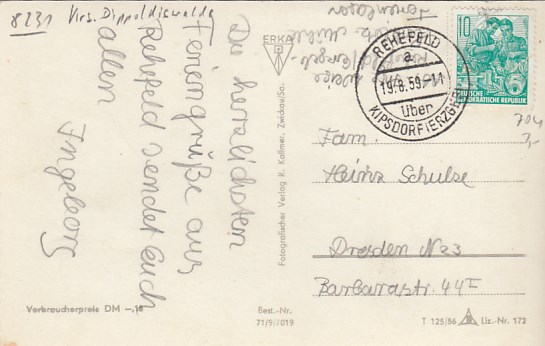 8231 Krs. Dippoldiswalde
Die herzlichsten
Feriengrüße aus
Rehefeld sendet Euch
allen
Ingeborg
ERKA
REHEFELD
a
19.8.59.-11
über
KIPSDORF (ERZGEB)
10
DEUTSCHE
DEMOKRATISCHE REPUBLIK
Fam.
Heinz Schulze
Dresden N 23
Barbarastr. 44 I
Fotografischer Verlag R. Kallmer, Zwickau/Sa.
Verbraucherpreis DM -,18
Best.-Nr.
71/9/7019
T 125/56 Liz.-Nr. 172